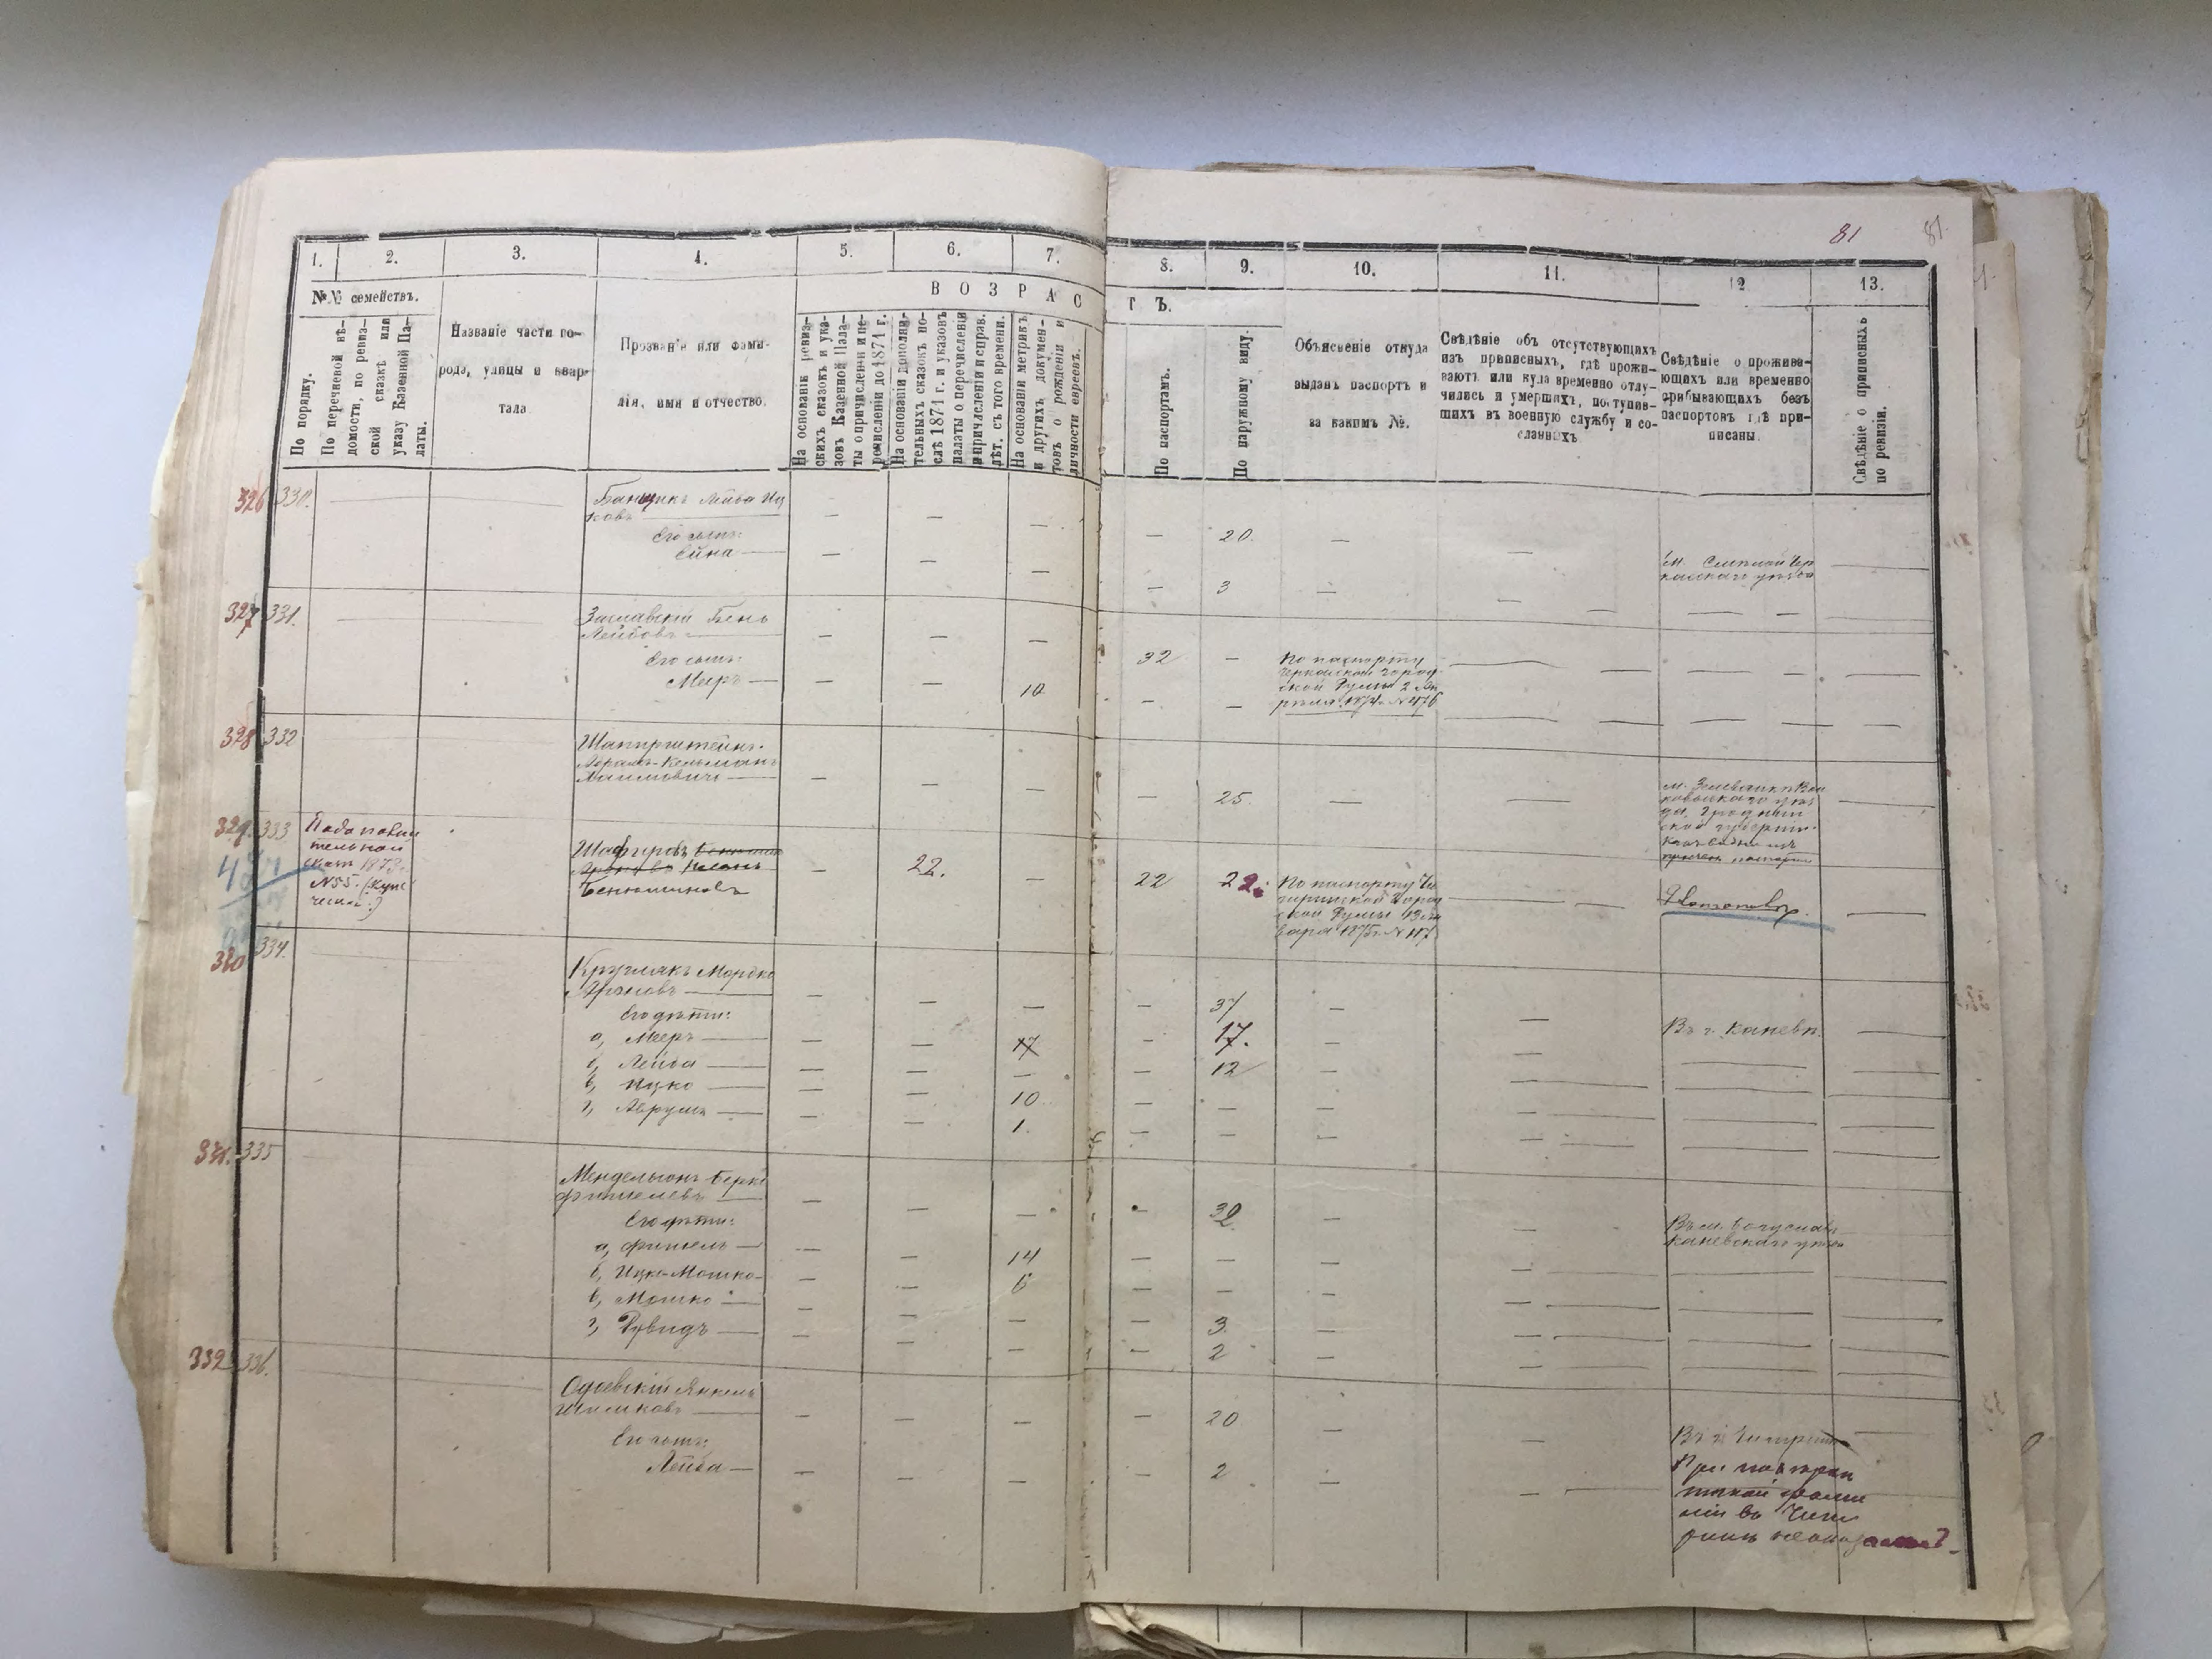 81
81.
1.
2.
3.
4.
5.
6.
7.
8.
9.
10.
11.
12
13.
№№ семействъ.
По порядку.
По перечневой вѣ-
домости, по ревиз-
ской сказкѣ или
указу Казенной Па-
латы.
Названіе части го-
рода, улицы и квар-
тала.
Прозваніе или фами-
лія, имя и отчество.
ВОЗРАС
ТЪ.
На основаніи ревиз-
скихъ сказокъ и ука-
зовъ Казенной Пала-
ты о причисленіи и пе-
речисленіи до 1874 г.
На основаніи дополни-
тельныхъ сказокъ по-
слѣ 1874 г. и указовъ
палаты о перечисленіи
и причисленіи и справ.
лѣт. съ того времени.
На основаніи метрикъ
и другихъ докумен-
товъ о рожденіи и
личности евреевъ.
По паспортамъ.
По наружному виду.
Объясненіе откуда
выданъ паспортъ и
за какимъ №.
Свѣдѣніе объ отсутствующихъ
изъ приписныхъ, гдѣ прожи-
ваютъ или куда временно отлу-
чились и умершихъ, поступив-
шихъ въ военную службу и со-
сланныхъ
Свѣдѣніе о прожива-
ющихъ или временно
прибывающихъ безъ
паспортовъ гдѣ при-
писаны.
Свѣдѣніе о приписныхъ
по ревизіи.
326 330.
Банщикъ Лейба Иц
ковъ — — — — 20. — —
Его сынъ:
Ейна — — — — — 3 —
м. Смѣлой Чер
касскаго уѣзда
327 331.
Заславскій Бень
Лейбовъ — — — 32 —
Его сынъ:
Мееръ — — — 10 — —
По паспорту
Черкасской город
ской Думы 2 Ап
рѣля 1874 г. № 476
328 332
Абрамъ-Кельманъ
Хаимовичъ — — — — 25. — —
да, Гроднен
ской губерніи.
329. 333
По дополни
тельной
сказк 1873 г.
№ 55. (купе
ческой)
Шафиръ
Беньюминовъ — 22. — 22 22.
По паспорту Чи
гиринской Город
ской Думы 13 Ян
варя 1875 г. № 117
330 334.
Круглякъ Мордко
Ароновъ — — — — 37 — —
Въ г. Каневѣ.
Его дѣти:
а, Мееръ — — — 17 — 17. —
б, Лейба — — — — 12 —
в, Ицко — — — 10. — — —
г, Абрумъ — — — 1. — — —
331. 335
Мендельсонъ Берко
Фишелевъ — — — — 32 — —
Въ м. Богуславѣ
Каневскаго уѣзда
Его дѣти:
а, Фишель — — — 14 — — —
б, Ицко-Мошко — — — 6 — — —
в, Мошко — — — — 3. —
г, Дувидъ — — — — 2 —
332. 336.
Одоевскій Янкель
Шимковъ — — — — 20 — —
Его сынъ:
Лейба — — — — 2 — —